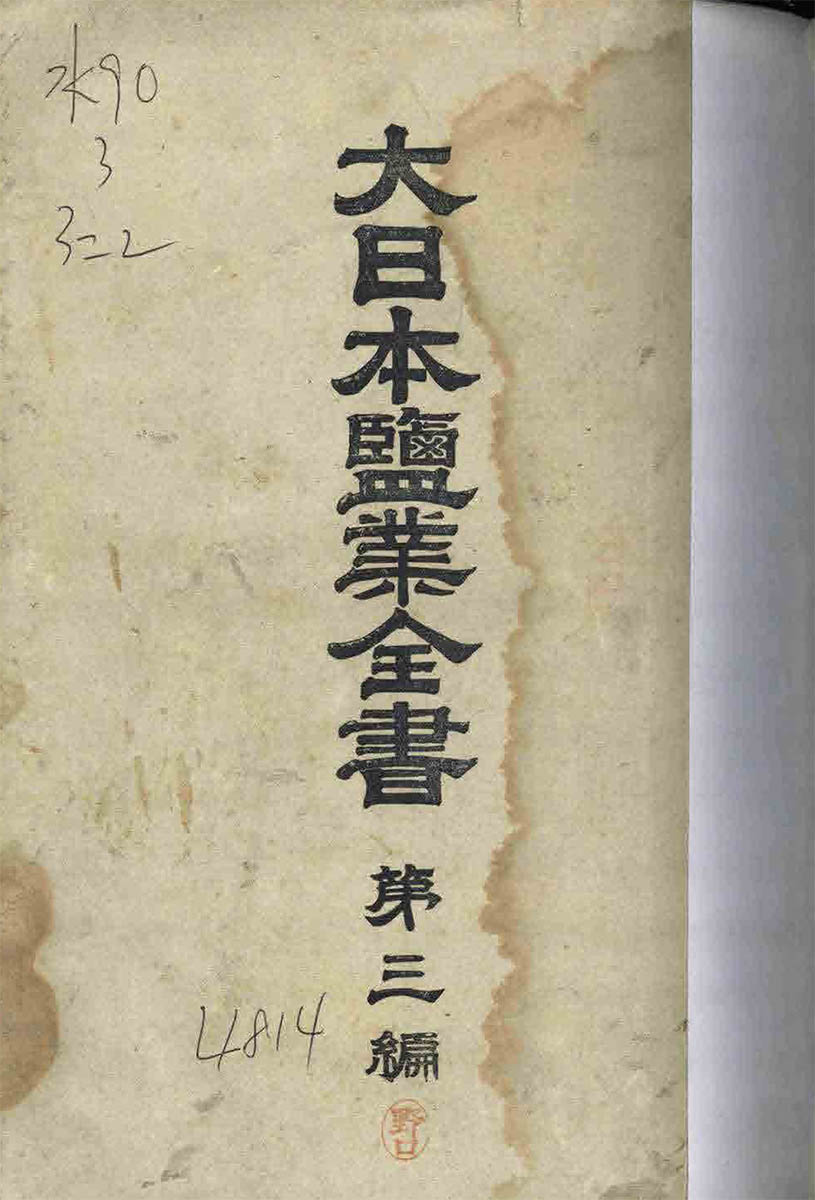 水90
3
3ニ2
大日本鹽業全書
第三編
4814
野口